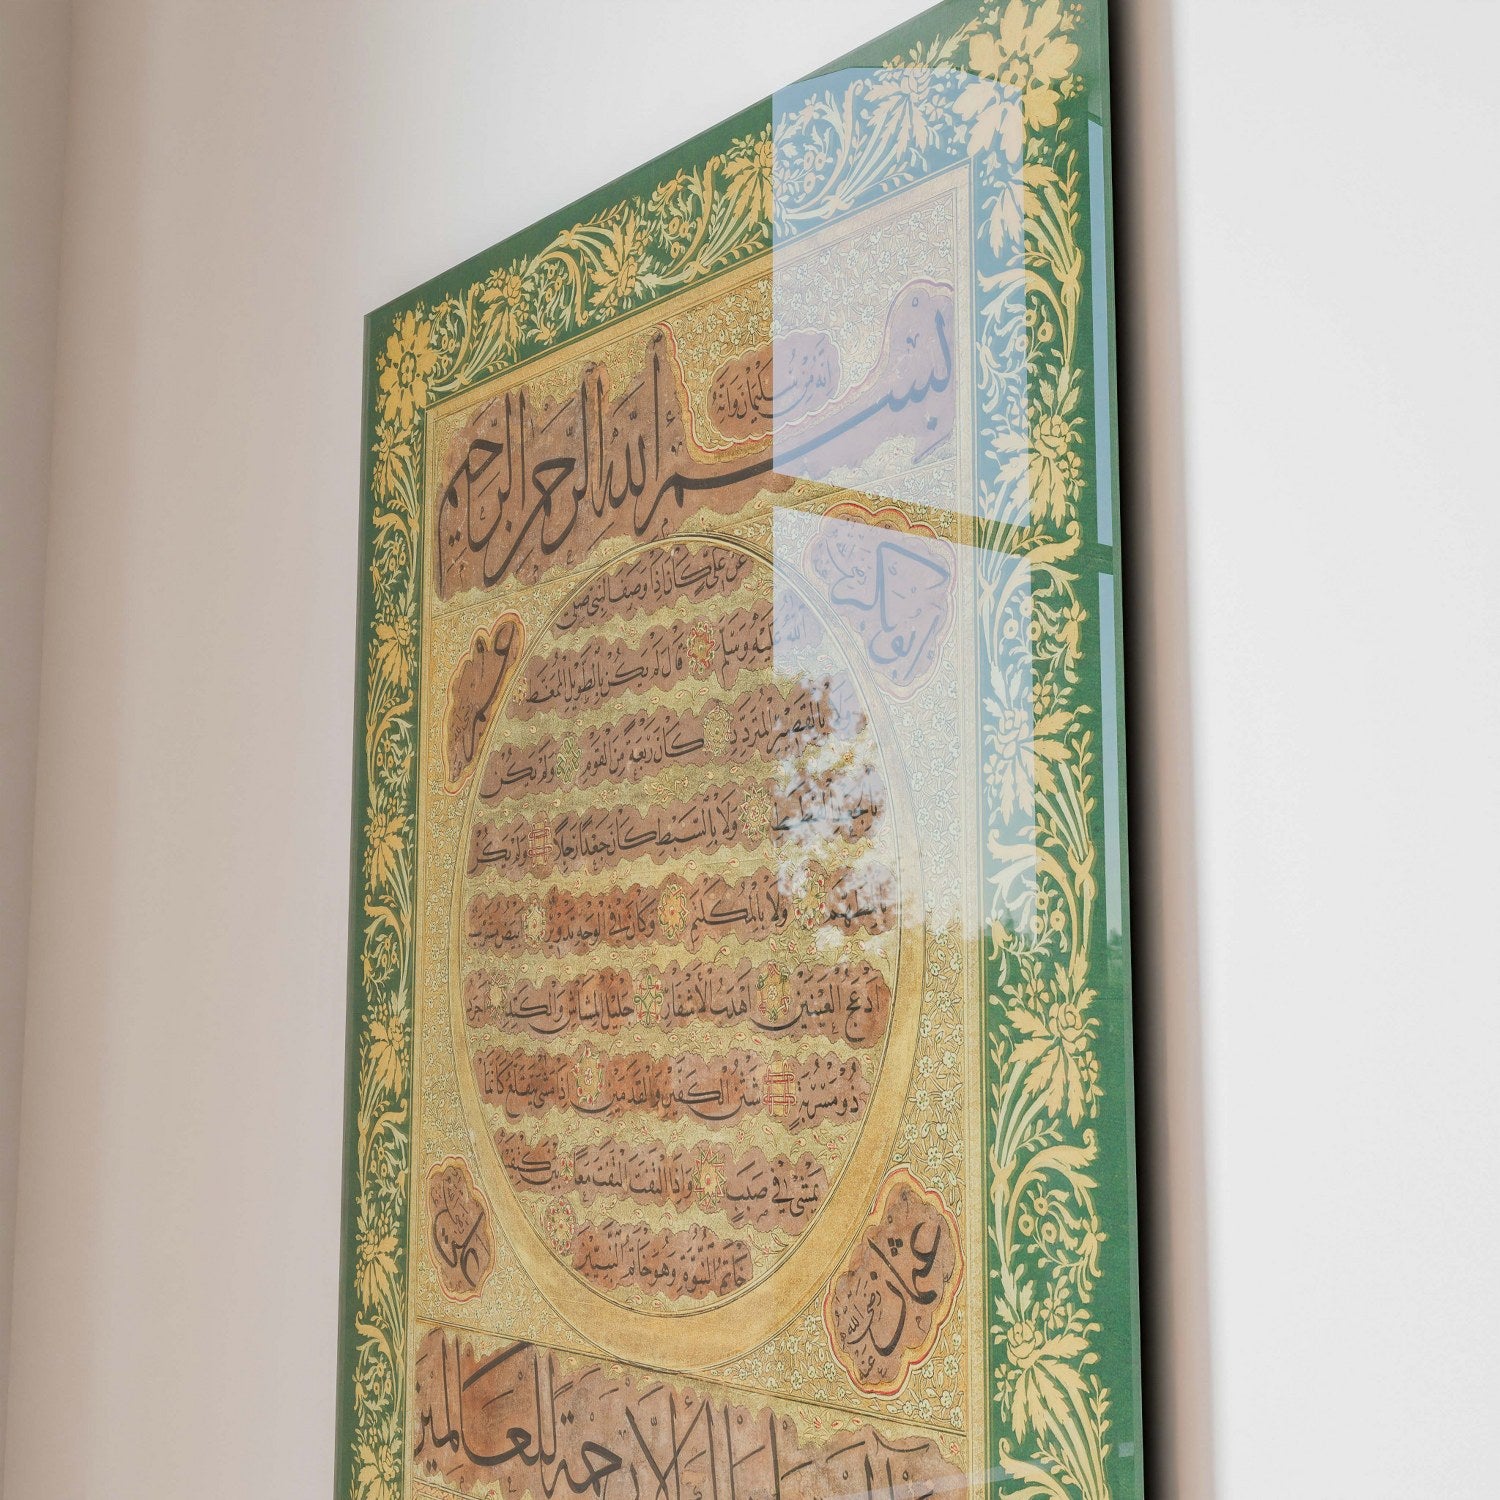 انه من سليمان وانه
بسم الله الرحمن الرحيم
عن علي كان اذا وصف النبي صلى
الله عليه وسلم قال لم يكن بالطويل الممغط
ولا بالقصير المتردد كان ربعة من القوم ولم يكن
بالجعد القطط ولا بالسبط كان جعدا رجلا ولم يكن
بالمطهم ولا بالمكلثم وكان في الوجه تدوير ابيض مشرب
ادعج العينين اهدب الاشفار جليل المشاش والكتد اجرد
ذو مسربة شثن الكفين والقدمين اذا مشى يتقلع كانما
يمشي في صبب واذا التفت التفت معا بين كتفيه
خاتم النبوة وهو خاتم النبيين
ابو بكر
عمر
عثمان رضي الله عنه
علي
وما ارسلناك الا رحمة للعالمين